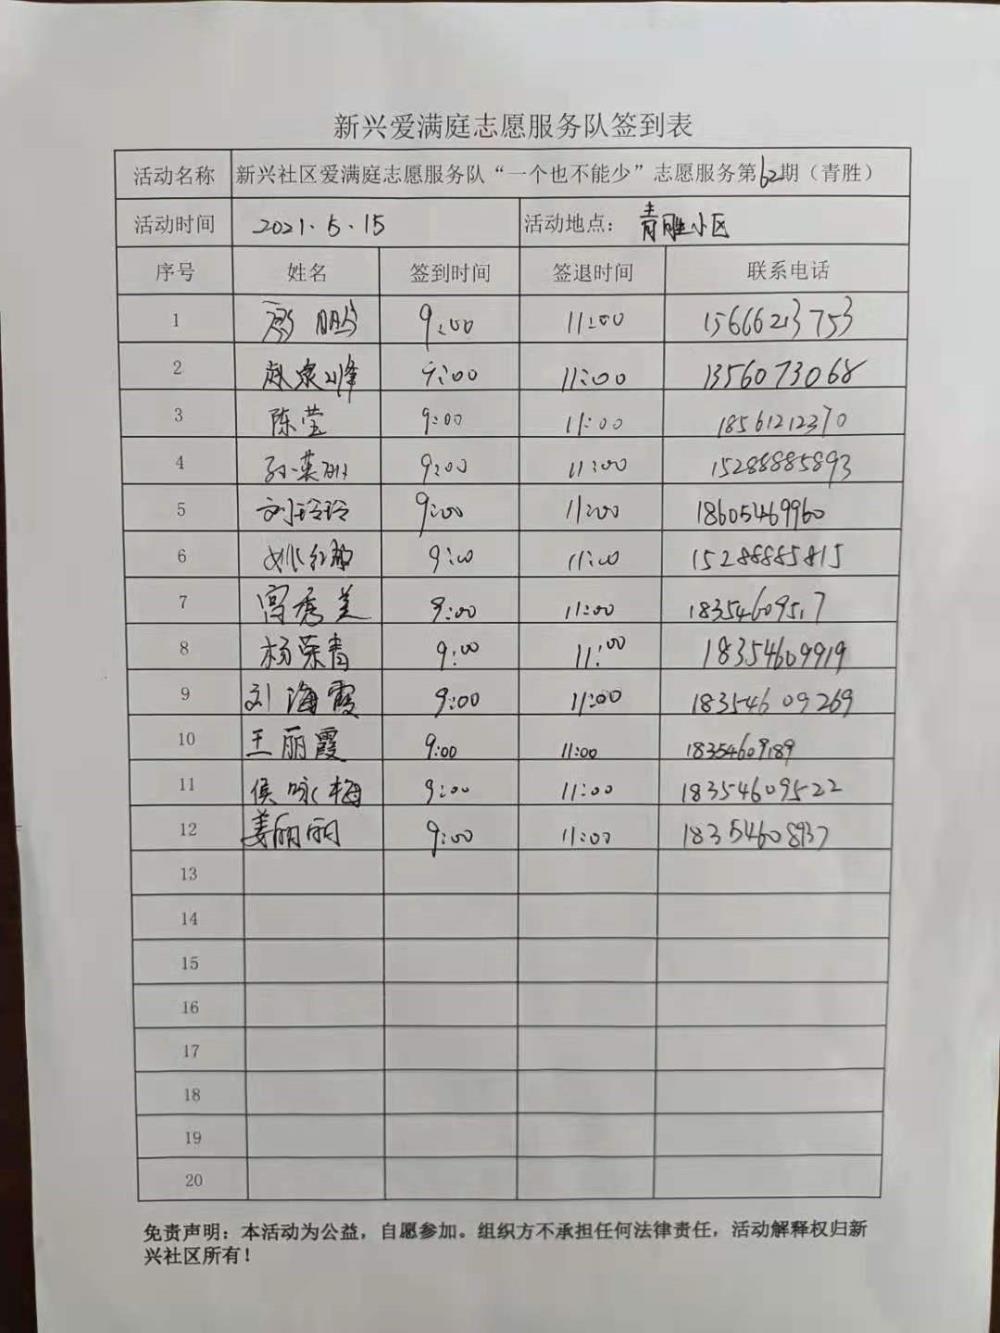 新兴爱满庭志愿服务队签到表
活动名称 新兴社区爱满庭志愿服务队“一个也不能少”志愿服务第62期（青胜）
活动时间 2021.5.15 活动地点： 青胜小区
序号 姓名 签到时间 签退时间 联系电话
1 鹏 9:00 11:00 15666213753
2 9:00 11:00 1356073068
3 陈莹 9:00 11:00 18561212370
4 孙 9:00 11:00 15288885893
5 刘玲玲 9:00 11:00 18605469960
6 姚红 9:00 11:00 15288885815
7 秀美 9:00 11:00 18354609517
8 杨荣青 9:00 11:00 18354609919
9 刘海霞 9:00 11:00 18354609269
10 王丽霞 9:00 11:00 18354609189
11 侯咏梅 9:00 11:00 18354609522
12 姜丽丽 9:00 11:00 18354608937
13
14
15
16
17
18
19
20
免责声明：本活动为公益，自愿参加。组织方不承担任何法律责任，活动解释权归新
兴社区所有！